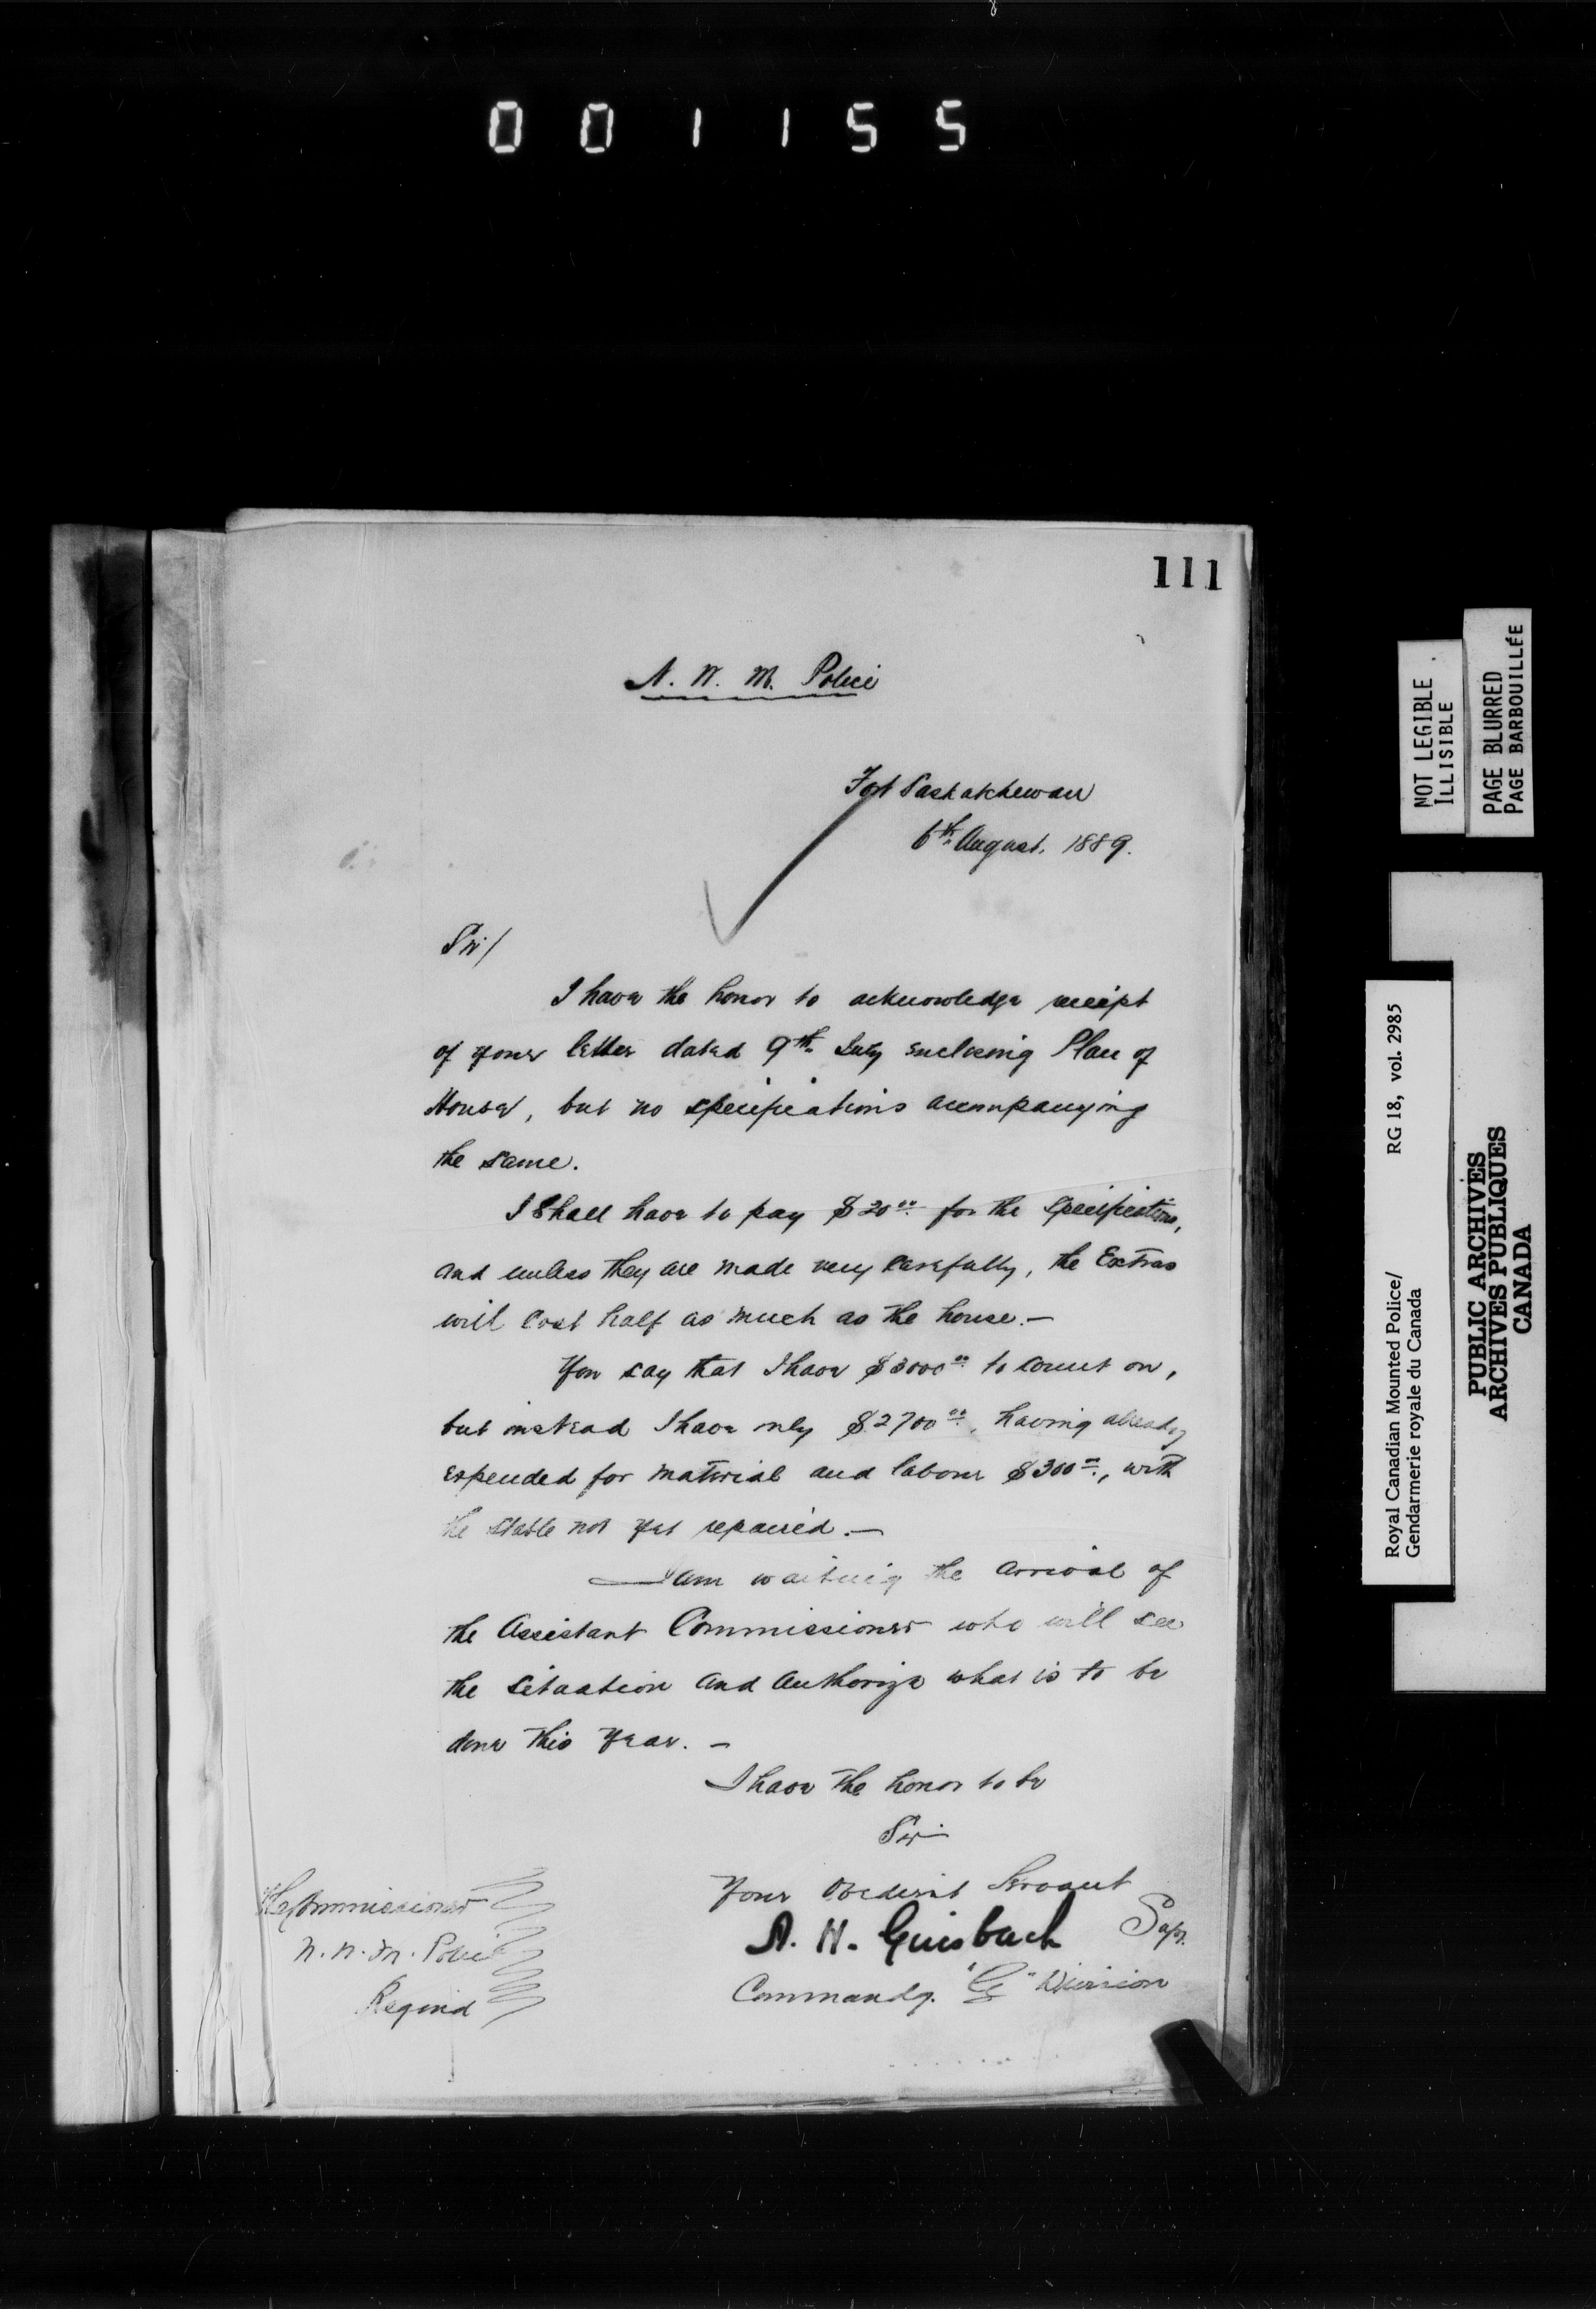 001155
111
N. W. M. Police
Fort Saskatchewan
6th August. 1889.
Sir/
I have the honor to acknowledge receipt
of your letter dated 9th July enclosing Plan of
House, but no specifications accompanying
the same.
I shall have to pay $20.00 for the specifications,
and unless they are made very carefully, the Extras
will cost half as much as the house.—
You say that I have $3000.00 to count on,
but instead I have only $2700.00, having already
expended for material and labour $300.00, with
the stable not yet repaired.—
I am waiting the arrival of
the Assistant Commissioner who will see
the situation and authorize what is to be
done this year.—
I have the honor to be
Sir
Your Obedient Servant
A. H. Griesbach Supt.
Commandg. "G" Division
The Commissioner
N. W. M. Police
Regina
NOT LEGIBLE
ILLISIBLE
PAGE BLURRED
PAGE BARBOUILLÉE
Royal Canadian Mounted Police/ RG 18, vol. 2985
Gendarmerie royale du Canada
PUBLIC ARCHIVES
ARCHIVES PUBLIQUES
CANADA